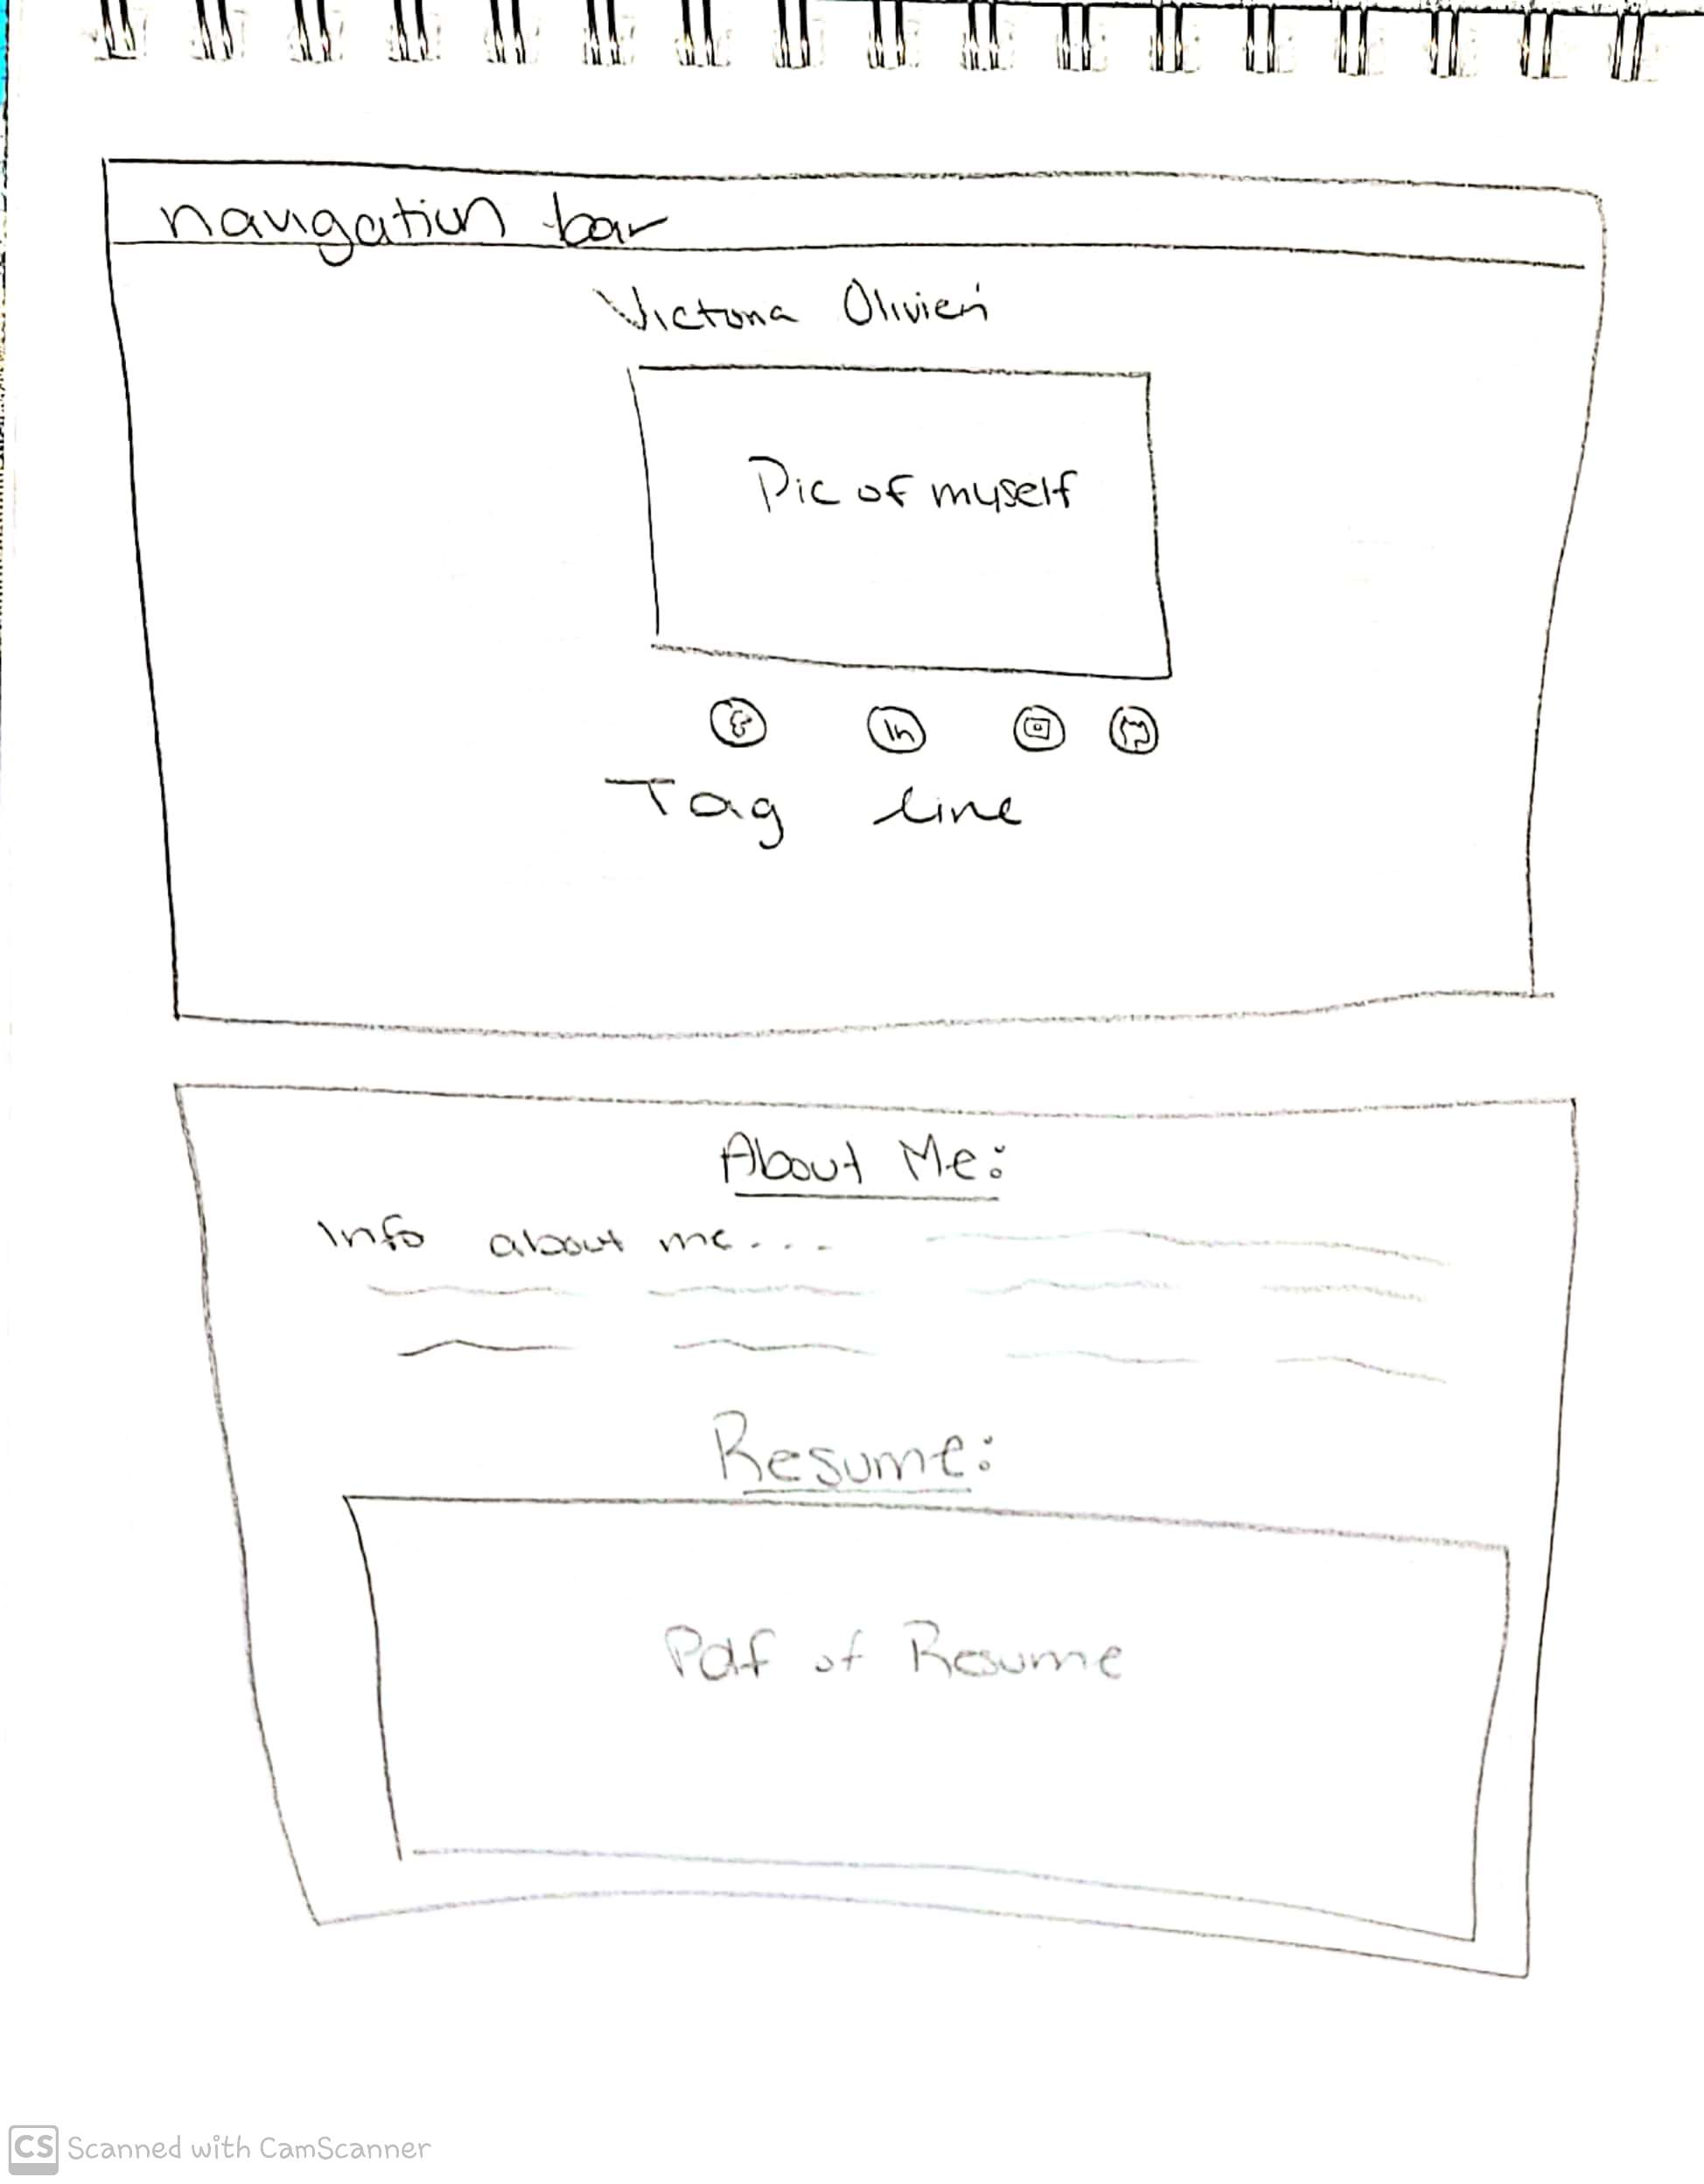 navigation bar
Victoria Olivieri
Pic of myself
f in
Tag line
About Me:
Info about me...
Resume:
Pdf of Resume
CS Scanned with CamScanner